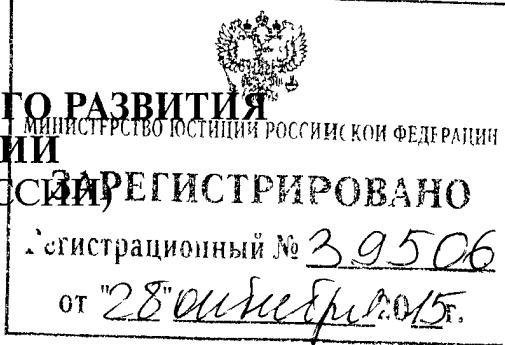 ГО РАЗВИТИЯ
МИНИСТЕРСТВО ЮСТИЦИИ РОССИЙСКОЙ ФЕДЕРАЦИИ
ИИ
ССИИ)
ЗАРЕГИСТРИРОВАНО
Регистрационный № 39506
от "28" октября 2015г.